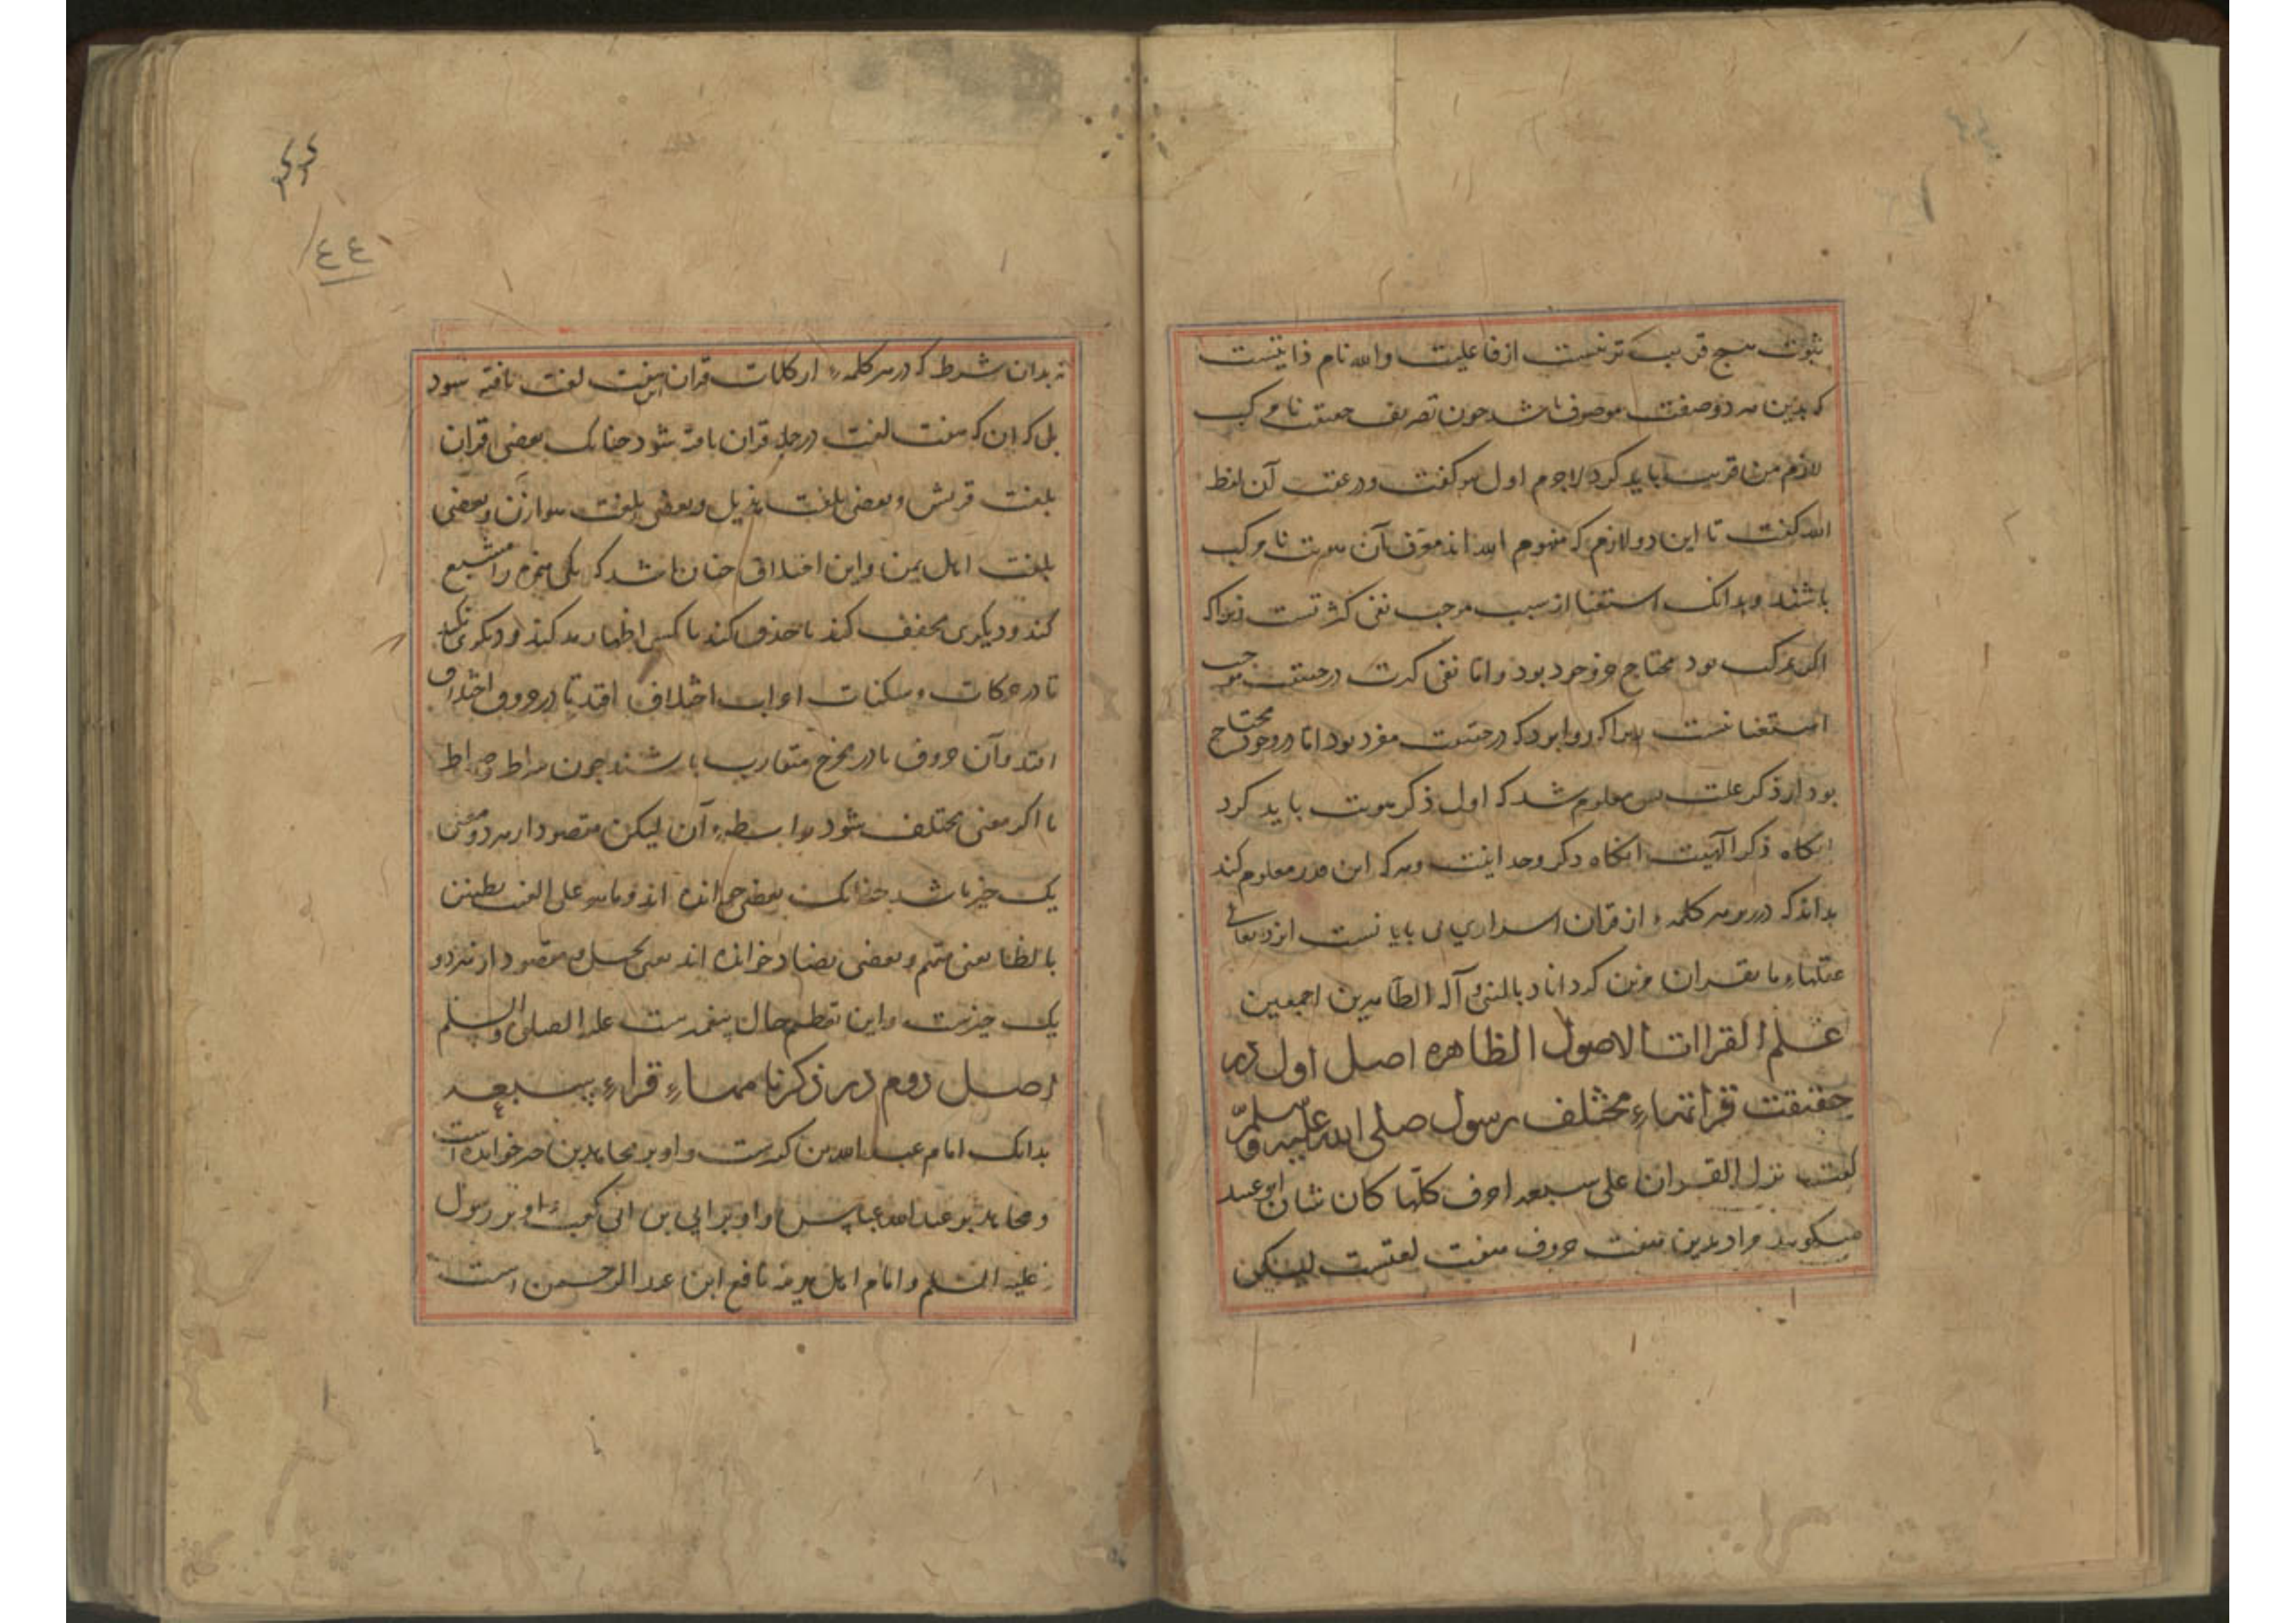 ثبوت هیچ قریب تر نیست از فاعلیت والله نام ذاتیست
که بدین هر دو صفت موصوف باشد چون تعریف حقیقت نامرکب
لازم من قریب باید کرد لاجرم اول هو گفت و در عقب آن لفظ
الله گفت تا این دو لازم که مفهوم الله اند معرف آن هویت نامرکب
باشند و بدانک استغنا از سبب موجب نفی کثرتست زیراک
اگر مرکب بود محتاج جزو خود بود و اما نفی کثرت در حقیقت موجب
استغنا نیست زیرا که روا بود که در حقیقت مفرد بود اما در وجود محتاج
بود از ذکر علت پس معلوم شد که اول ذکر هویت باید کرد
انکاه ذکر آلهیت انکاه ذکر وحدانیت و هر که این قدر معلوم کند
بداند که در هر کلمهٔ از قران اسراری بی پایانست ایزد تعالی
عقلهاء ما بقران مزین کرداناد بالنبی و آله الطاهرین اجمعین
علم القراات الاصول الظاهره اصل اول در
حقیقت قراتهاء مختلف رسول صلی الله علیه وسلم
گفت نزل القران علی سبعه احرف کلها کاف شاف ابو عبید
میکوید مراد بدین هفت حروف هفت لغتست لیکن
نه بدان شرط که در هر کلمهٔ از کلمات قران این هفت لغت یافته شود
بل که ان که هفت لغت در جمله قران یافته شود چنانک بعضی قران
بلغت قریش و بعضی بلغت هذیل و بعضی بلغت هوازن و بعضی
بلغت اهل یمن و این اختلاف چنان باشد که یکی همزه را مشبع
کند و دیکری مخفف کند یا حذف کند یا کس اظهار مد کند و دیکری نکند
تا در حرکات و سکنات اعراب اختلاف افتد تا در حروف اختلاف
افتد و آن حروف یا در مخرج متقارب باشند چون سراط و صراط
یا اکر معنی مختلف شود بواسطهٔ آن لیکن مقصود از هر دو معنی
یک چیز باشد چنانک بعضی خوانده اند وما هو علی الغیب بظنین
بالظا یعنی متهم و بعضی بضاد خوانده اند یعنی بخیل و مقصود از هر دو
یک چیزست و این تعظیم حال پیغمبرست علیه الصلی والسلم
اصل دوم در ذکر نامهاء قراء سبعه
بدانک امام عبد الله بن کثیرست و او بر مجاهد بن جبر خوانده است
و مجاهد بر عبد الله عباس و او بر ابی بن کعب و او بر رسول
علیه السلم و امام اهل مدینه نافع ابن عبد الرحمن است
٤٤